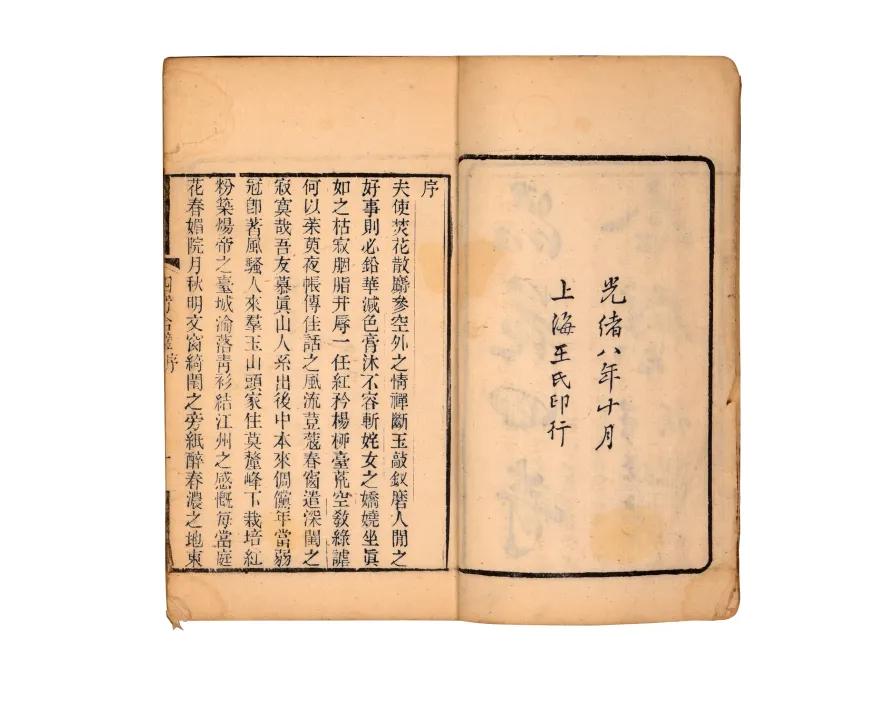 光緒八年十月
上海王氏印行
序
夫使焚花散麝參空外之情禪斷玉敲釵磨人間之
好事則必鉛華減色膏沐不容斬姹女之嬌嬈坐眞
如之枯寂胭脂井辱一任紅矜楊栁臺荒空敎綠謔
何以茱萸夜帳傳佳話之風流荳蔻春窗遣深閨之
寂寞哉吾友慕眞山人系出後中本來倜儻年當弱
冠卽著風騷人來羣玉山頭家住莫釐峰下栽培紅
粉築煬帝之臺城淪落靑衫結江州之感慨每當庭
花春媚院月秋明文窗綺閣之旁紙醉春濃之地東
序